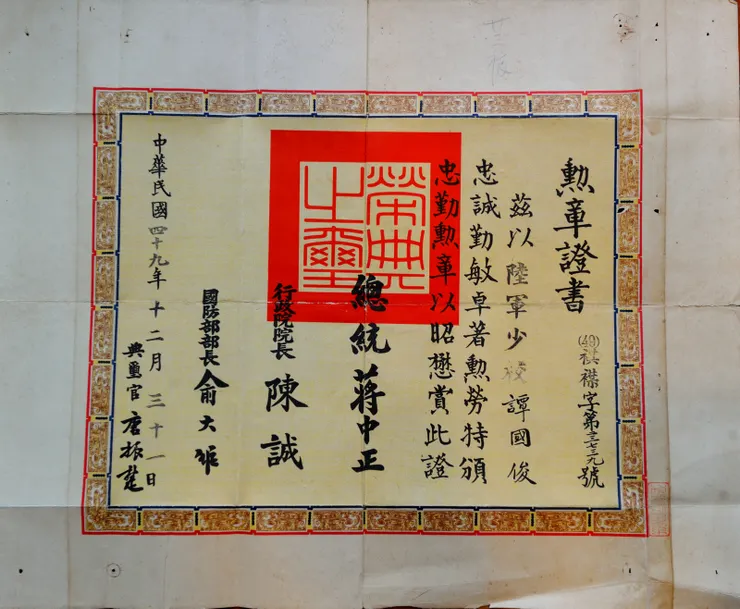 勲章證書
(49)祺襟字第三七三九號
茲以陸軍少校譚國俊
忠誠勤敏卓著勲勞特頒
忠勤勲章以昭懋賞此證
榮典之璽
總統 蔣中正
行政院院長 陳誠
國防部部長 俞大維
典璽官 唐振楚
中華民國四十九年十二月三十一日